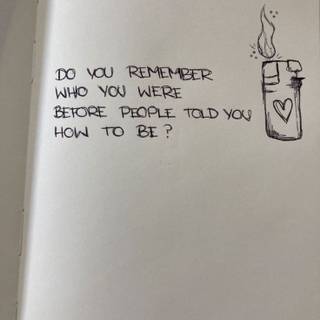 DO YOU REMEMBER
WHO YOU WERE
BEFORE PEOPLE TOLD YOU
HOW TO BE?